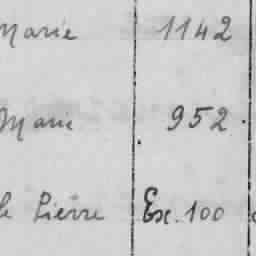 Marie 1142
Marie 952.
le Pierre Ex. 100